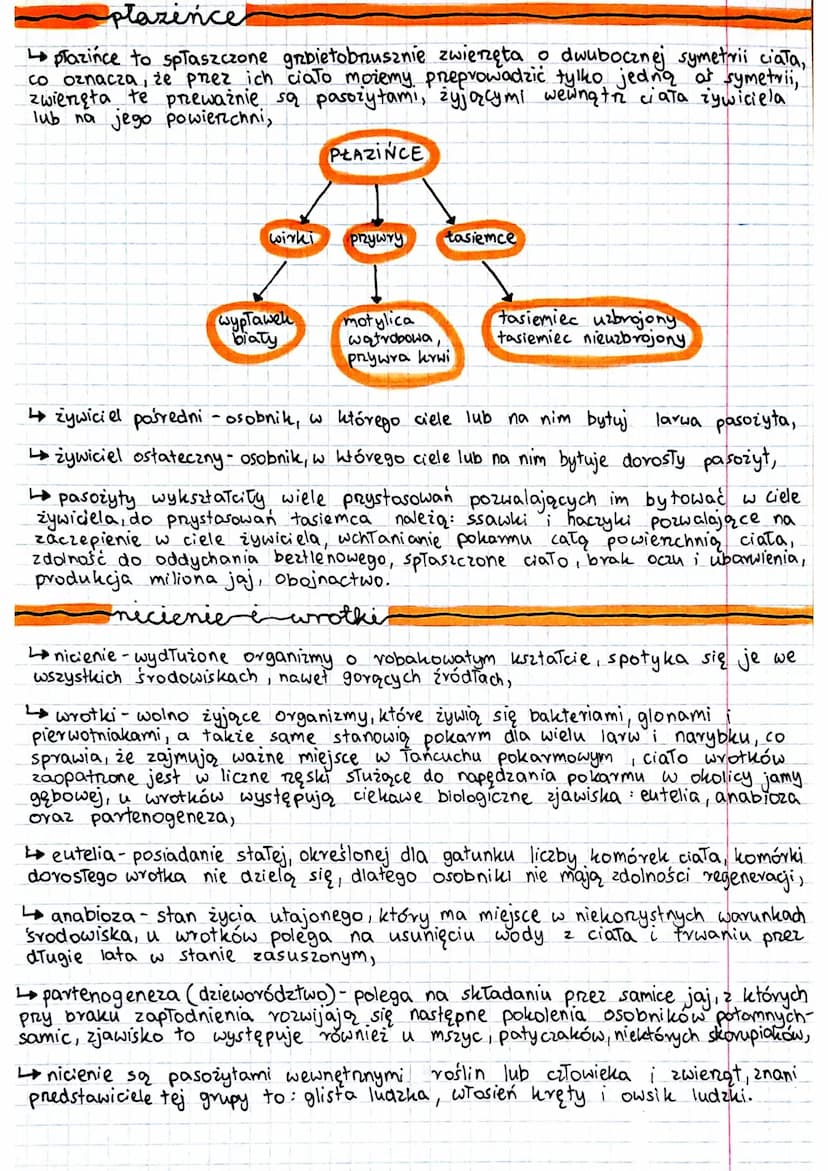 płazińce
↳ płazińce to spłaszczone grzbietobrzusznie zwierzęta o dwubocznej symetrii ciała,
co oznacza, że przez ich ciało możemy przeprowadzić tylko jedną oś symetrii,
zwierzęta te przeważnie są pasożytami, żyjącymi wewnątrz ciała żywiciela
lub na jego powierzchni,
PŁAZIŃCE
wirki przywry tasiemce
wypławek
biały
motylica
wątrobowa,
przywra krwi
tasiemiec uzbrojony
tasiemiec nieuzbrojony
↳ żywiciel pośredni - osobnik, w którego ciele lub na nim bytuj larwa pasożyta,
↳ żywiciel ostateczny - osobnik, w którego ciele lub na nim bytuje dorosły pasożyt,
↳ pasożyty wykształciły wiele przystosowań pozwalających im bytować w ciele
żywiciela, do przystosowań tasiemca należą: ssawki i haczyki pozwalające na
zaczepienie w ciele żywiciela, wchłanianie pokarmu całą powierzchnią ciała,
zdolność do oddychania beztlenowego, spłaszczone ciało, brak oczu i ubarwienia,
produkcja miliona jaj, obojnactwo.
nicienie i wrotki
↳ nicienie - wydłużone organizmy o robakowatym kształcie, spotyka się je we
wszystkich środowiskach, nawet gorących źródłach,
↳ wrotki - wolno żyjące organizmy, które żywią się bakteriami, glonami i
pierwotniakami, a także same stanowią pokarm dla wielu larw i narybku, co
sprawia, że zajmują ważne miejsce w łańcuchu pokarmowym, ciało wrotków
zaopatrzone jest w liczne rzęski służące do napędzania pokarmu w okolicy jamy
gębowej, u wrotków występują ciekawe biologiczne zjawiska: eutelia, anabioza
oraz partenogeneza,
↳ eutelia - posiadanie stałej, określonej dla gatunku liczby komórek ciała, komórki
dorosłego wrotka nie dzielą się, dlatego osobniki nie mają zdolności regeneracji,
↳ anabioza - stan życia utajonego, który ma miejsce w niekorzystnych warunkach
środowiska, u wrotków polega na usunięciu wody z ciała i trwaniu przez
długie lata w stanie zasuszonym,
↳ partenogeneza (dzieworództwo) - polega na składaniu przez samice jaj, z których
przy braku zapłodnienia rozwijają się następne pokolenia osobników potomnych -
samic, zjawisko to występuje również u mszyc, patyczaków, niektórych skorupiaków,
↳ nicienie są pasożytami wewnętrznymi roślin lub człowieka i zwierząt, znani
przedstawiciele tej grupy to: glista ludzka, włosień kręty i owsik ludzki.